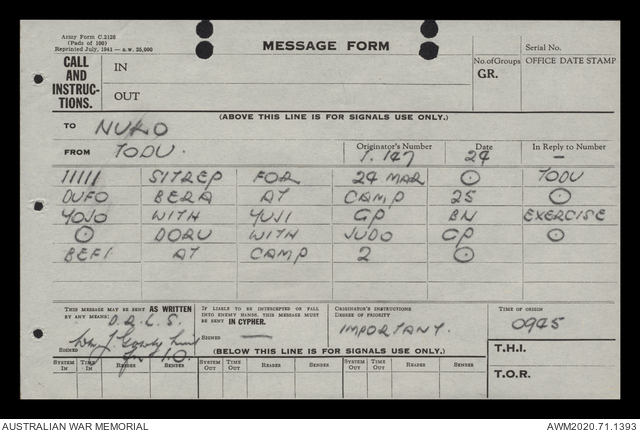 Army Form C.2128
(Pads of 100)
Reprinted July, 1941 — a.w. 25,000
MESSAGE FORM
Serial No.
CALL AND INSTRUC-TIONS.
IN
OUT
No. of Groups
GR.
OFFICE DATE STAMP
(ABOVE THIS LINE IS FOR SIGNALS USE ONLY.)
TO NUKO
FROM TODU.
Originator's Number
I. 147
Date
29
In Reply to Number
—
11111 SITREP FOR 29 MAR ⊙ TODU
DUFO BERA AT CAMP 25 ⊙
YOJO WITH YUJI GP BN EXERCISE
⊙ DORU WITH JUDO GP ⊙
BEFI AT CAMP 2 ⊙
THIS MESSAGE MAY BE SENT AS WRITTEN BY ANY MEANS:
D.R.L.S.
SIGNED
I.O.
IF LIABLE TO BE INTERCEPTED OR FALL INTO ENEMY HANDS, THIS MESSAGE MUST BE SENT IN CYPHER.
SIGNED —
ORIGINATOR'S INSTRUCTIONS
DEGREE OF PRIORITY
IMPORTANT.
TIME OF ORIGIN
0945
(BELOW THIS LINE IS FOR SIGNALS USE ONLY.)
T.H.I.
T.O.R.
SYSTEM IN TIME IN READER SENDER SYSTEM OUT TIME OUT READER SENDER SYSTEM OUT TIME OUT READER SENDER
AUSTRALIAN WAR MEMORIAL
AWM2020.71.1393